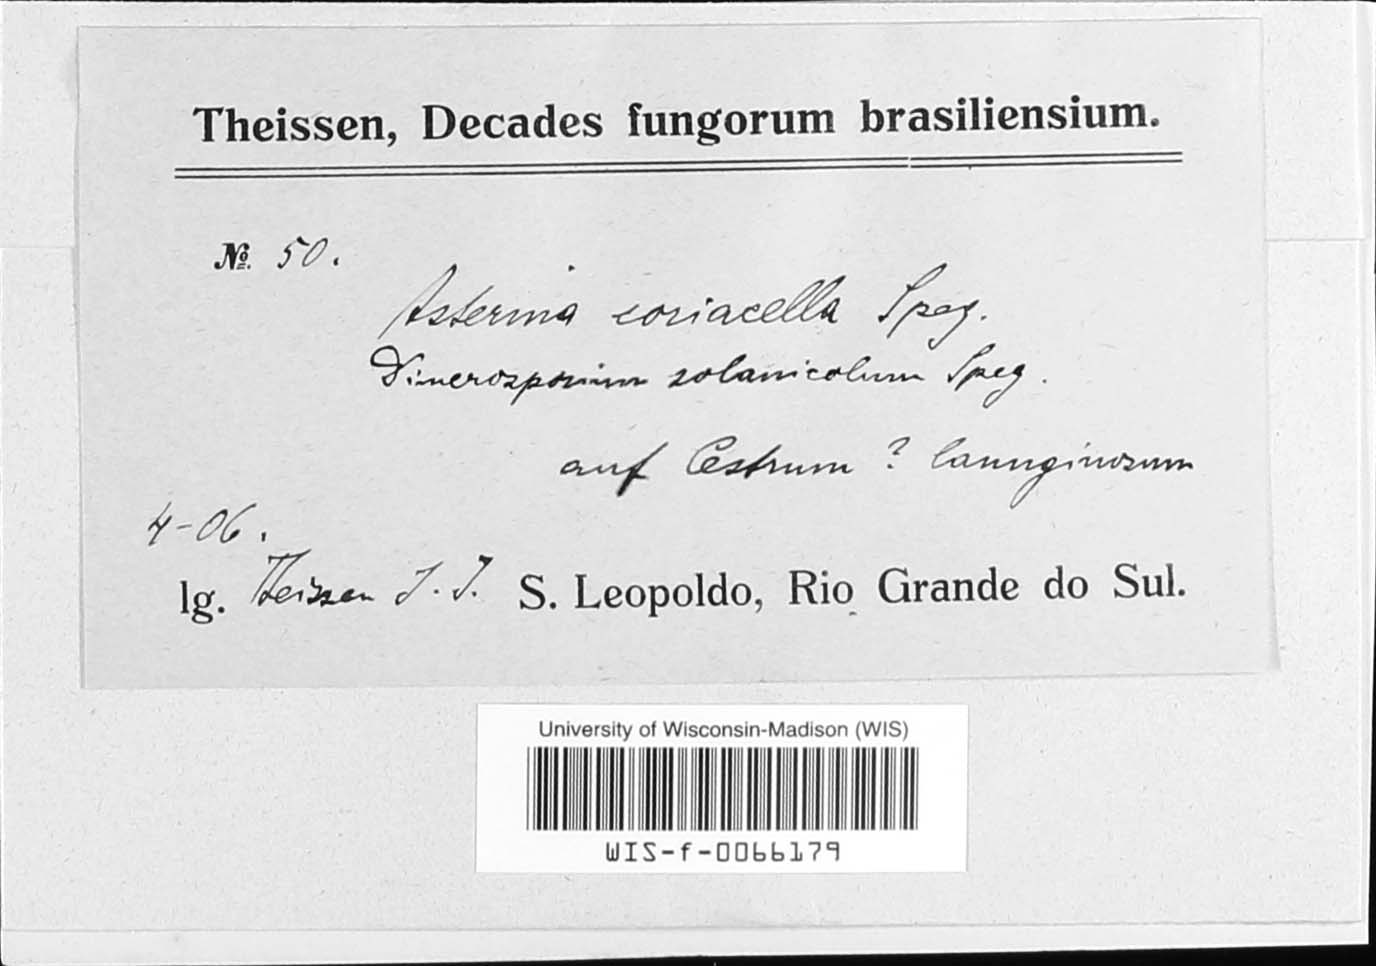 Theissen, Decades fungorum brasiliensium.
№ 50.
Asterina coriacella Speg.
Dimerosporium solanicolum Speg.
auf Cestrum ? lanuginosum
4-06.
lg. Theissen S. J. S. Leopoldo, Rio Grande do Sul.
University of Wisconsin-Madison (WIS)
WIS-f-0066179